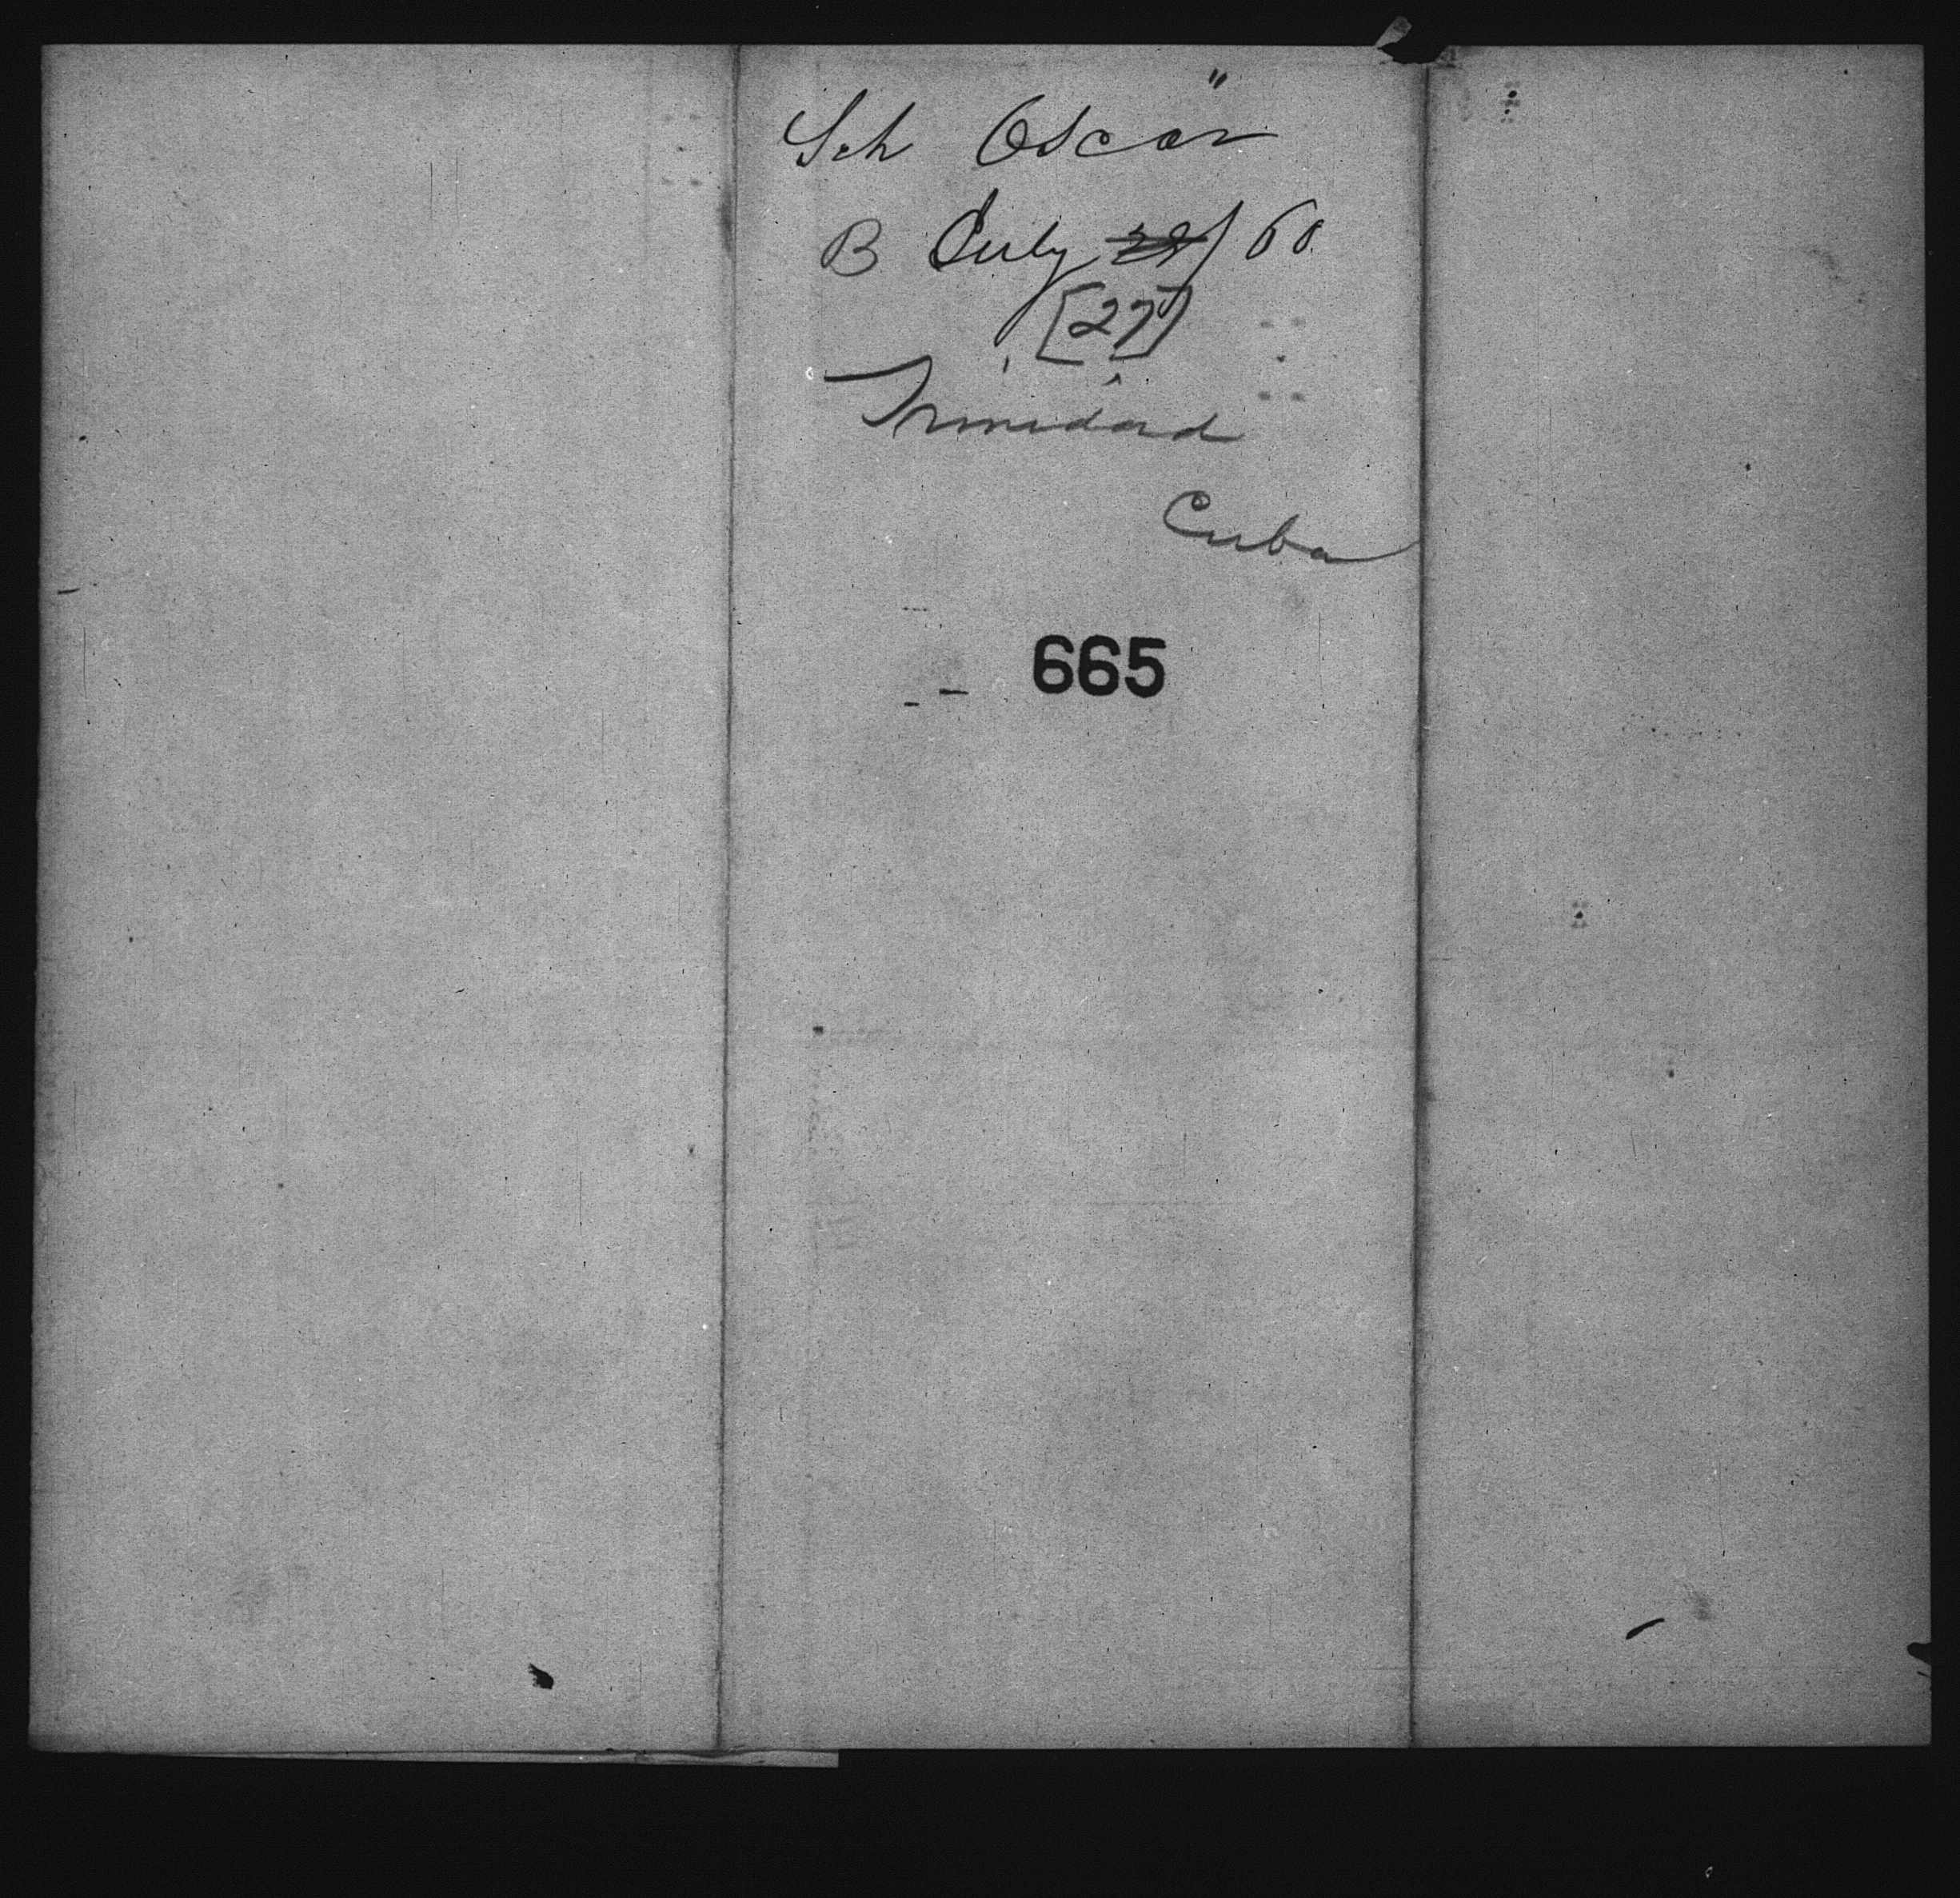 Sch Oscar"
B July 28/60
[27]
Trinidad
Cuba
665